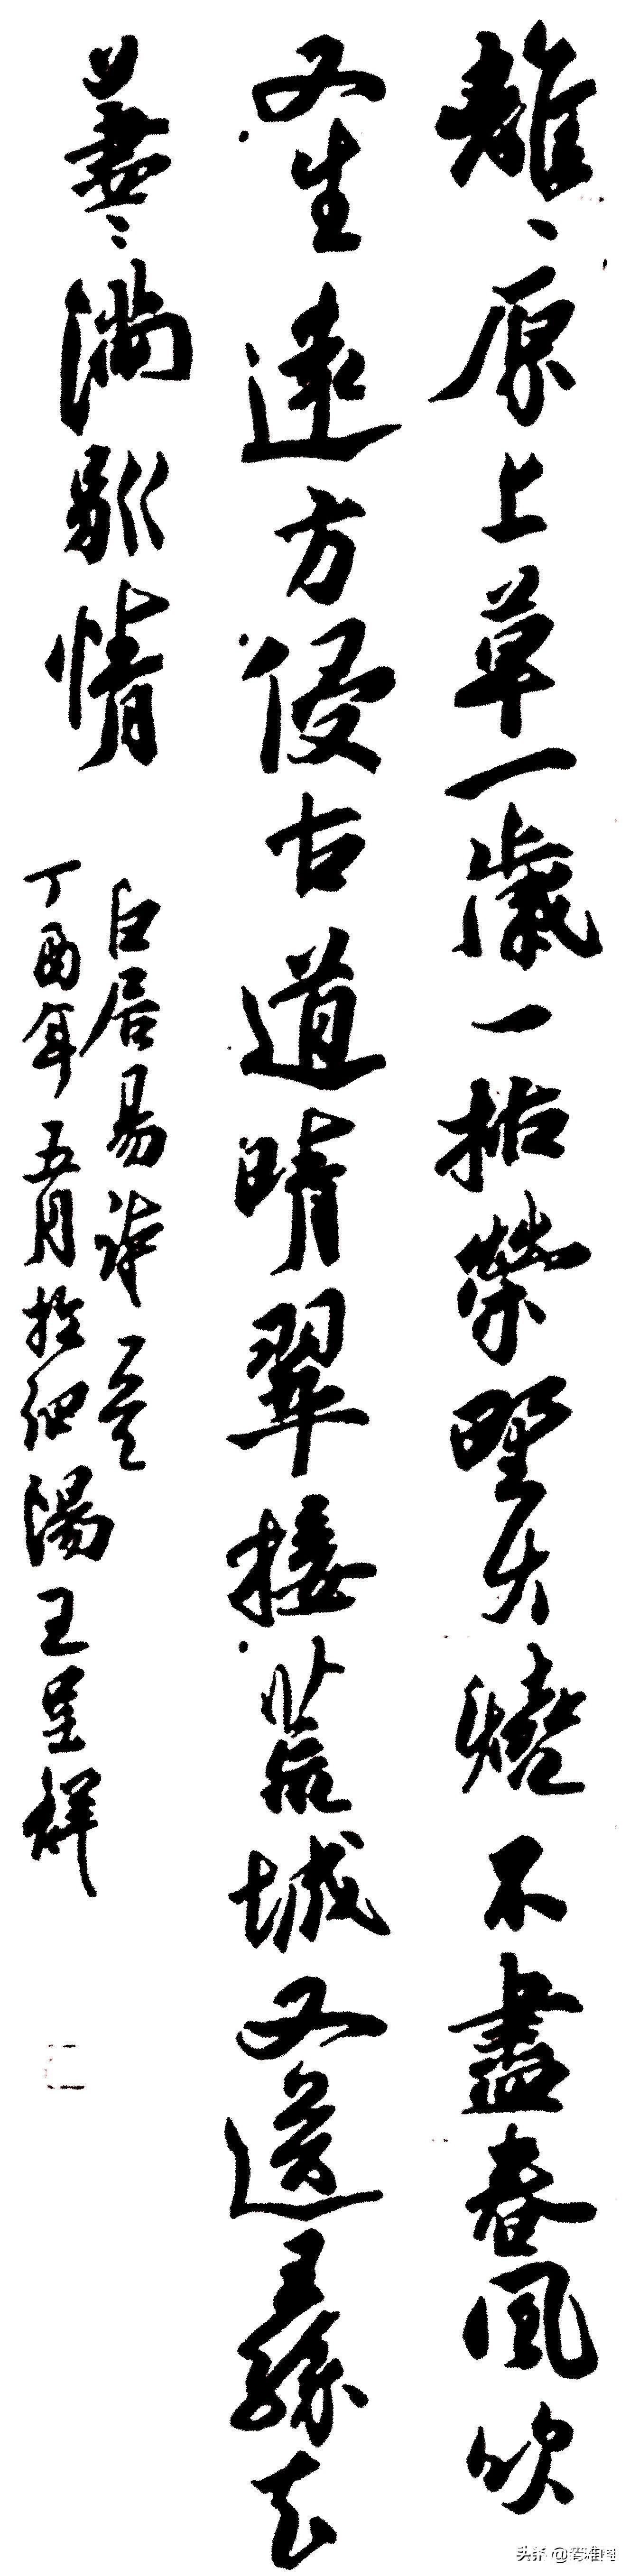 離〻原上草一歲一枯榮野火燒不盡春風吹
又生遠方侵古道晴翠接荒城又送王孫去
萋〻滿別情
白居易詩一首
丁酉年五月於湯王呈祥
头条